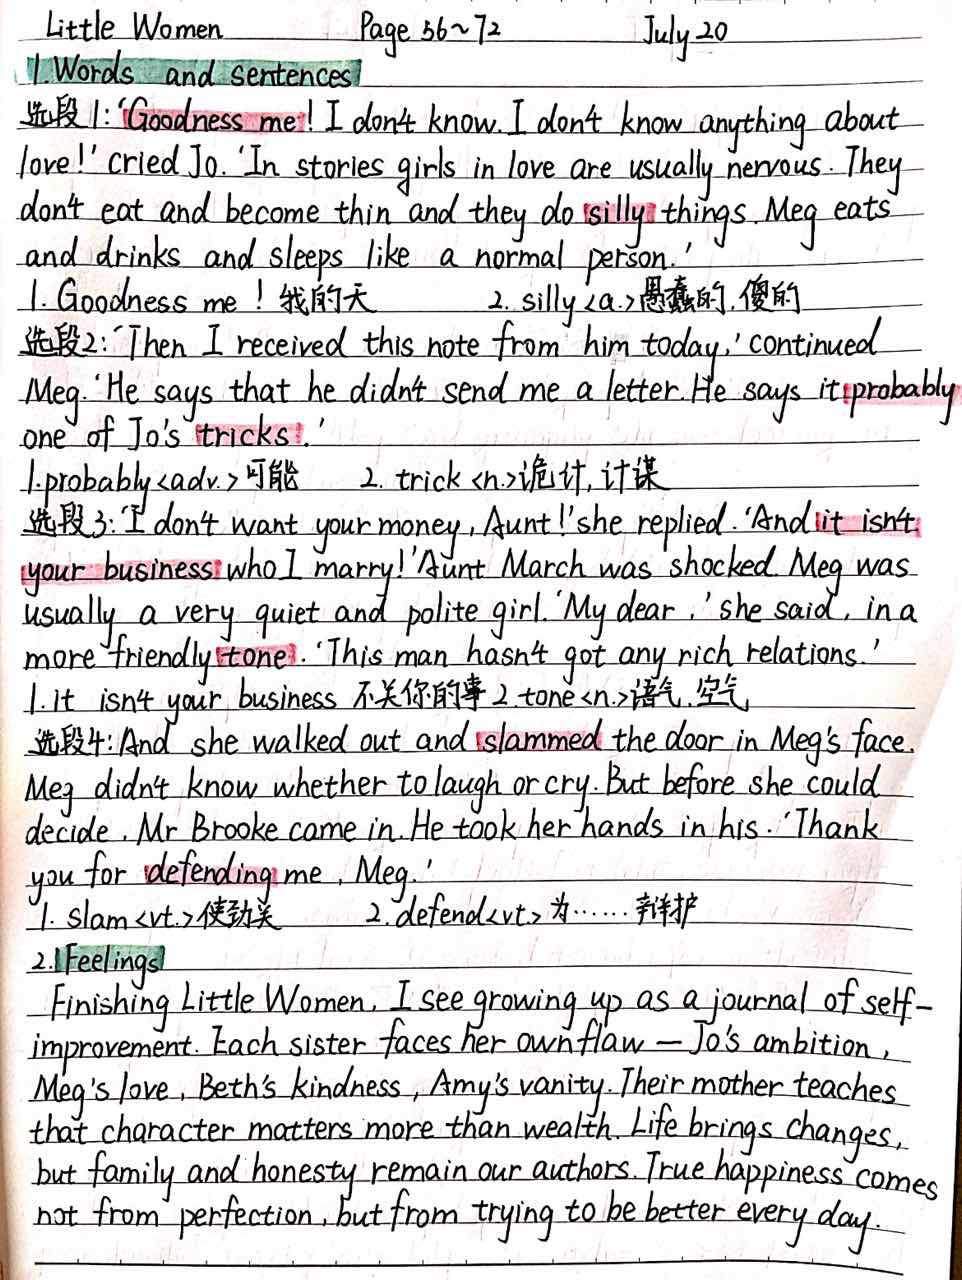 Little Women Page 56~72 July 20
1.Words and sentences
选段1:'Goodness me! I don't know. I don't know anything about
love!' cried Jo. 'In stories girls in love are usually nervous. They
don't eat and become thin and they do silly things. Meg eats
and drinks and sleeps like a normal person.'
1. Goodness me! 我的天 2. silly <a.>愚蠢的,傻的
选段2:'Then I received this note from him today,' continued
Meg. 'He says that he didn't send me a letter. He says it probably
one of Jo's tricks.'
1.probably<adv.>可能 2. trick <n.>诡计,计谋
选段3:'I don't want your money, Aunt!' she replied. 'And it isn't
your business who I marry!' Aunt March was shocked. Meg was
usually a very quiet and polite girl. 'My dear,' she said, in a
more friendly tone. 'This man hasn't got any rich relations.'
1. It isn't your business 不关你的事 2. tone <n.>语气,空气
选段4:And she walked out and slammed the door in Meg's face.
Meg didn't know whether to laugh or cry. But before she could
decide, Mr Brooke came in. He took her hands in his. 'Thank
you for defending me, Meg.'
1. slam <vt.>使劲关 2. defend<vt.> 为……辩护
2. Feelings
Finishing Little Women, I see growing up as a journal of self-
improvement. Each sister faces her own flaw — Jo's ambition,
Meg's love, Beth's kindness, Amy's vanity. Their mother teaches
that character matters more than wealth. Life brings changes,
but family and honesty remain our authors. True happiness comes
not from perfection, but from trying to be better every day.